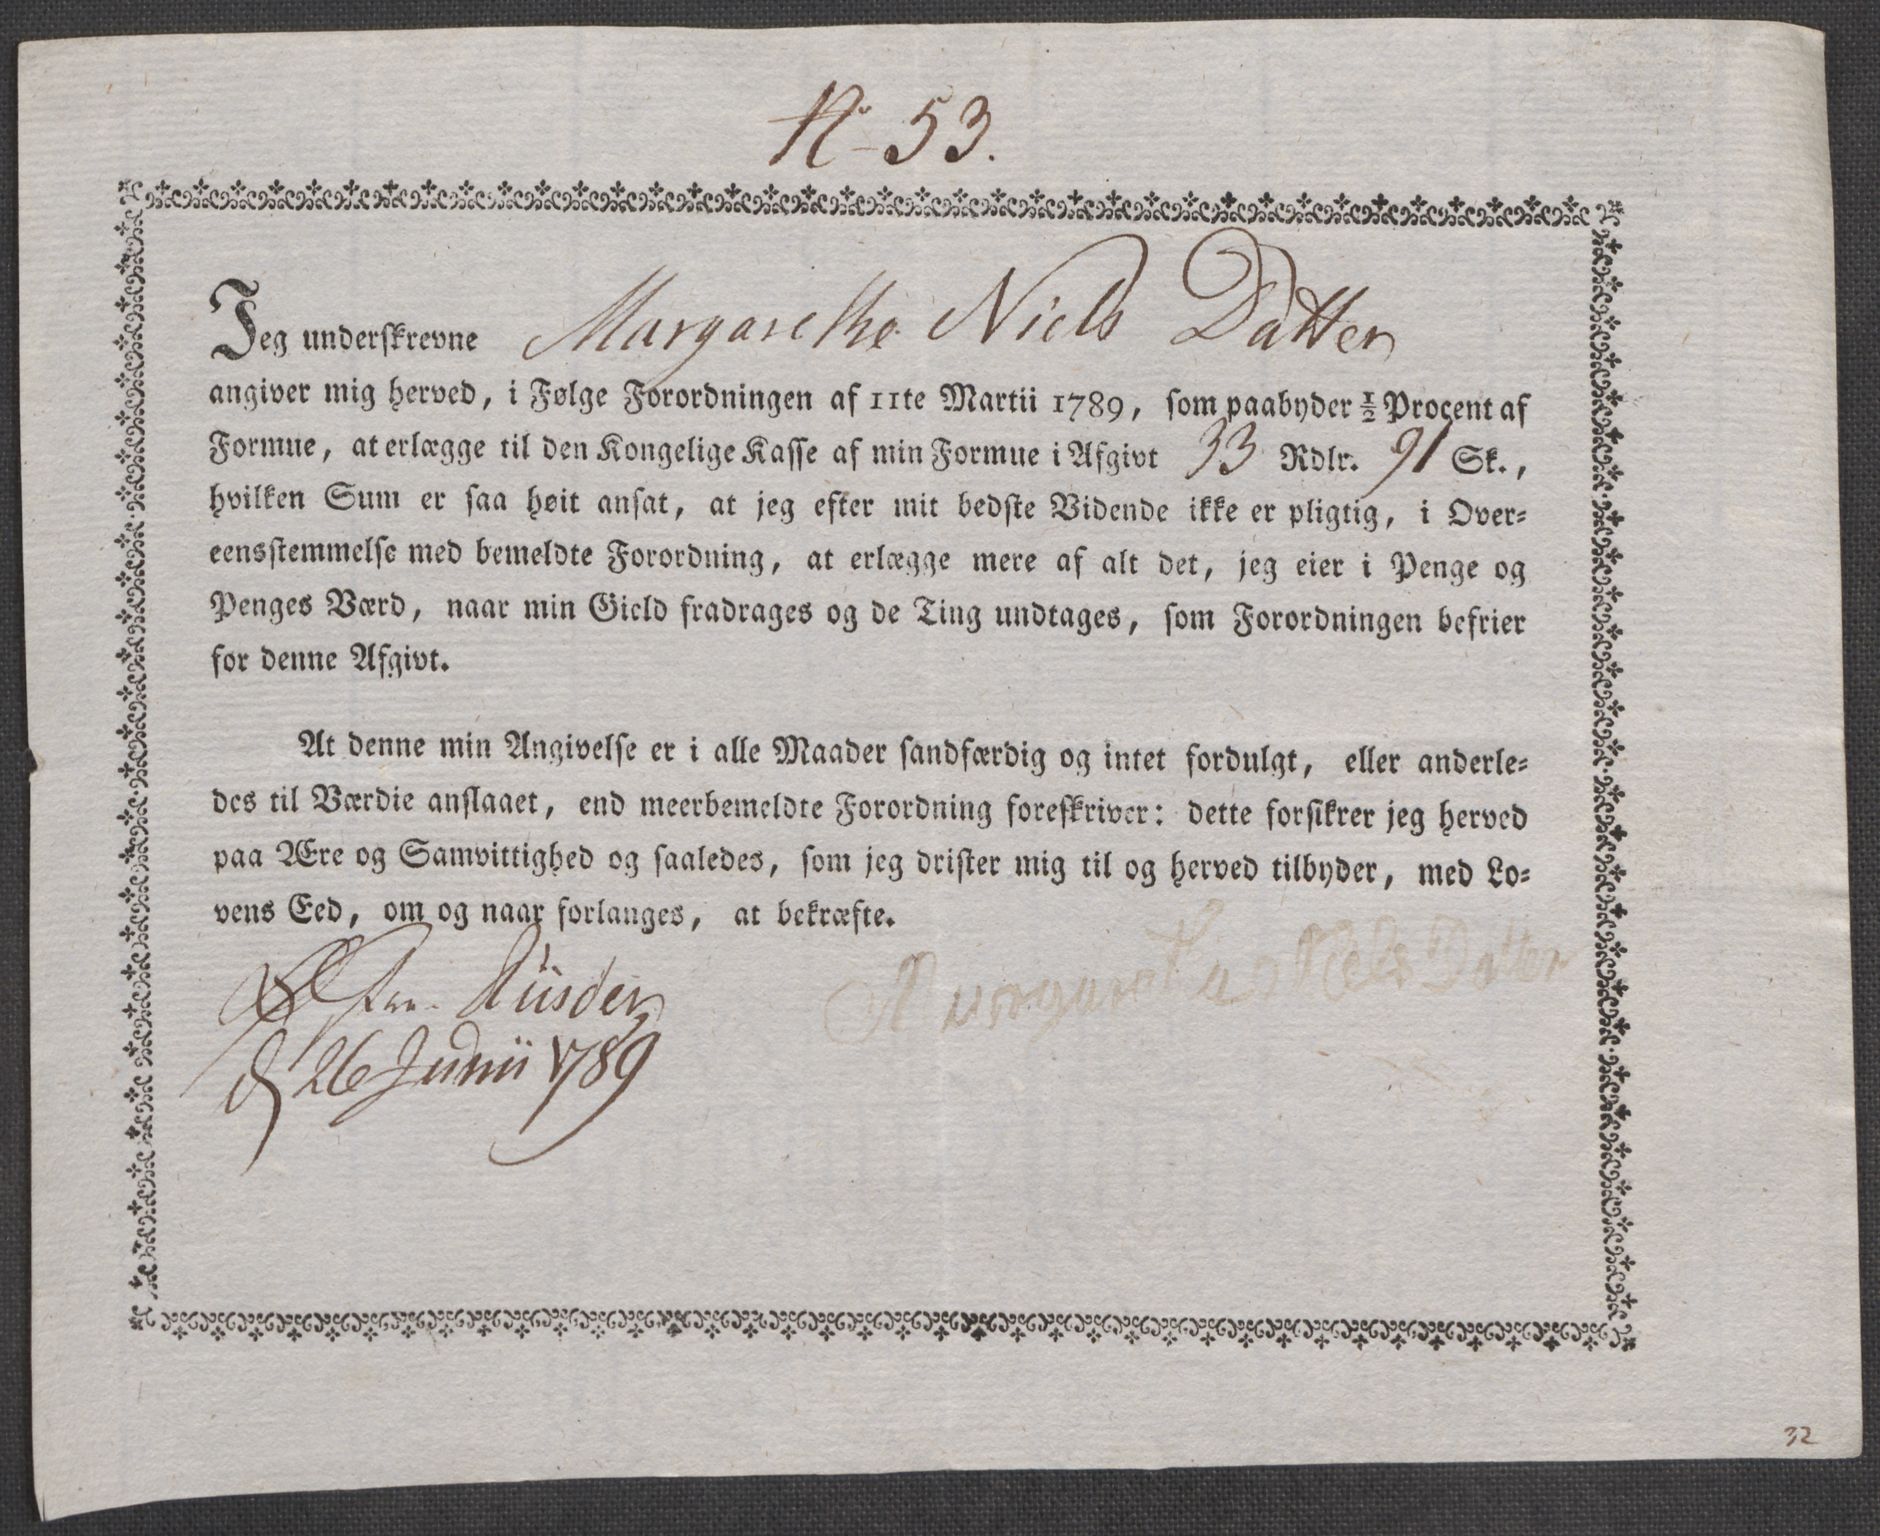 No 53.
Jeg underskrevne Margarethe Niels Datter
angiver mig herved, i Følge Forordningen af 11te Martii 1789, som paabyder ½ Procent af
Formue, at erlægge til den Kongelige Kasse af min Formue i Afgivt 33 Rdlr. 91 Sk.,
hvilken Sum er saa høit ansat, at jeg efter mit bedste Vidende ikke er pligtig, i Over-
eensstemmelse med bemeldte Forordning, at erlægge mere af alt det, jeg eier i Penge og
Penges Værd, naar min Gield fradrages og de Ting undtages, som Forordningen befrier
for denne Afgivt.
At denne min Angivelse er i alle Maader sandfærdig og intet fordulgt, eller anderle-
des til Værdie anslaaet, end meerbemeldte Forordning foreskriver: dette forsikrer jeg herved
paa Ære og Samvittighed og saaledes, som jeg drister mig til og herved tilbyder, med Lo-
vens Eed, om og naar forlanges, at bekræfte.
Riisder
Margaretha Niels Datter
d 26 Junii 1789
32